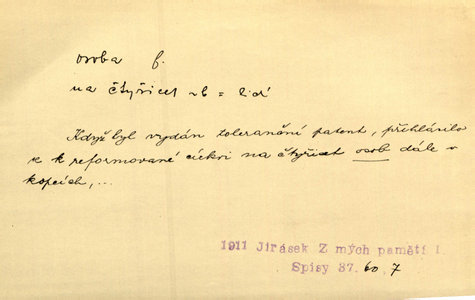 osoba f.
na čtyřicet ~b = lidí
Když byl vydán toleranční patent, přihlásilo
se k reformované církvi na čtyřicet osob dále v
kopcích,...
1911 Jirásek Z mých pamětí I.
Spisy 37. 60 7